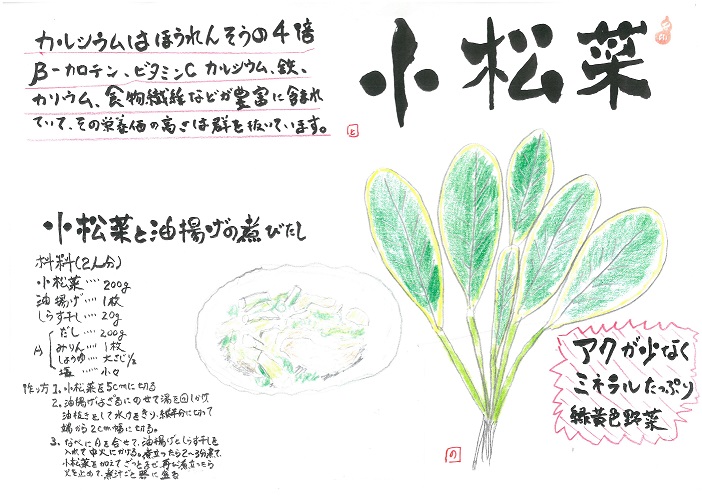 小松菜
カルシウムはほうれんそうの4倍
β-カロテン、ビタミンC カルシウム、鉄、
カリウム、食物繊維などが豊富に含まれ
ていて、その栄養価の高さは群を抜いています。
と
小松菜と油揚げの煮びたし
材料(2人分)
小松菜‥‥200g
油揚げ‥‥1枚
しらす干し‥20g
A
だし‥‥200g
みりん‥‥1枚
しょうゆ‥‥大さじ1/2
塩‥‥少々
作り方 1. 小松菜を5cmに切る
2. 油揚げはざるにのせて湯を回しかけ
油抜きをして水けをきり、縦半分に切って
端から2cm幅に切る。
3. なべにAを合せて、油揚げとしらす干しを
入れて中火にかける。煮立ったら2〜3分煮て、
小松菜を加えてさっとまぜ、再び煮立ったら
火を止めて、煮汁ごと器に盛る
アクが少なく
ミネラルたっぷり
緑黄色野菜
の